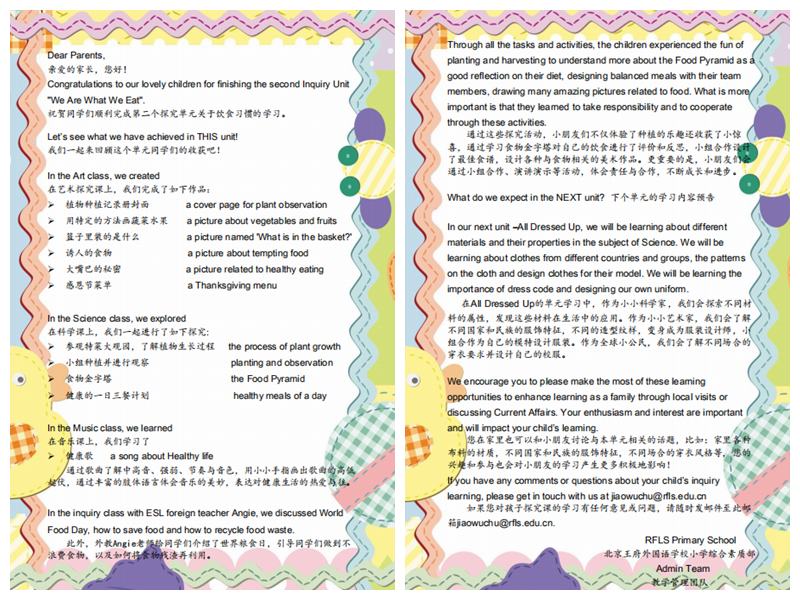 Dear Parents,
亲爱的家长，您好！
Congratulations to our lovely children for finishing the second Inquiry Unit
"We Are What We Eat".
祝贺同学们顺利完成第二个探究单元关于饮食习惯的学习。
Let's see what we have achieved in THIS unit!
我们一起来回顾这个单元同学们的收获吧！
In the Art class, we created
在艺术探究课上，我们完成了如下作品：
➢ 植物种植记录册封面 a cover page for plant observation
➢ 用特定的方法画蔬菜水果 a picture about vegetables and fruits
➢ 篮子里装的是什么 a picture named 'What is in the basket?'
➢ 诱人的食物 a picture about tempting food
➢ 大嘴巴的秘密 a picture related to healthy eating
➢ 感恩节菜单 a Thanksgiving menu
In the Science class, we explored
在科学课上，我们一起进行了如下探究：
➢ 参观特菜大观园，了解植物生长过程 the process of plant growth
➢ 小组种植并进行观察 planting and observation
➢ 食物金字塔 the Food Pyramid
➢ 健康的一日三餐计划 healthy meals of a day
In the Music class, we learned
在音乐课上，我们学习了
➢ 健康歌 a song about Healthy life
通过歌曲了解中高音、强弱、节奏与音色，用小小手指画出歌曲的高低
起伏，通过丰富的肢体语言体会音乐的美妙，表达对健康生活的热爱与向往。
In the inquiry class with ESL foreign teacher Angie, we discussed World
Food Day, how to save food and how to recycle food waste.
此外，外教Angie老师给同学们介绍了世界粮食日，引导同学们做到不
浪费食物，以及如何将食物残渣再利用。
Through all the tasks and activities, the children experienced the fun of
planting and harvesting to understand more about the Food Pyramid as a
good reflection on their diet, designing balanced meals with their team
members, drawing many amazing pictures related to food. What is more
important is that they learned to take responsibility and to cooperate
through these activities.
通过这些探究活动，小朋友们不仅体验了种植的乐趣还收获了小惊
喜，通过学习食物金字塔对自己的饮食进行了评价和反思，小组合作设计
了最佳食谱，设计各种与食物相关的美术作品。更重要的是，小朋友们会
通过小组合作、演讲演示等活动，体会责任与合作，不断成长和进步。
What do we expect in the NEXT unit? 下个单元的学习内容预告
In our next unit –All Dressed Up, we will be learning about different
materials and their properties in the subject of Science. We will be
learning about clothes from different countries and groups, the patterns
on the cloth and design clothes for their model. We will be learning the
importance of dress code and designing our own uniform.
在All Dressed Up的单元学习中，作为小小科学家，我们会探索不同材
料的属性，发现这些材料在生活中的应用。作为小小艺术家，我们会了解
不同国家和民族的服饰特征，不同的造型纹样，变身成为服装设计师，小
组合作为自己的模特设计服装。作为全球小公民，我们会了解不同场合的
穿衣要求并设计自己的校服。
We encourage you to please make the most of these learning
opportunities to enhance learning as a family through local visits or
discussing Current Affairs. Your enthusiasm and interest are important
and will impact your child's learning.
您在家里也可以和小朋友讨论与本单元相关的话题，比如：家里各种
布料的材质，不同国家和民族的服饰特征，不同场合的穿衣风格等，您的
兴趣和参与也会对小朋友的学习产生更多积极地影响！
If you have any comments or questions about your child's inquiry
learning, please get in touch with us at jiaowuchu@rfls.edu.cn
如果您对孩子探究课的学习有任何意见或问题，请随时发邮件至此邮
箱jiaowuchu@rfls.edu.cn.
RFLS Primary School
北京王府外国语学校小学综合素质部
Admin Team
教学管理团队